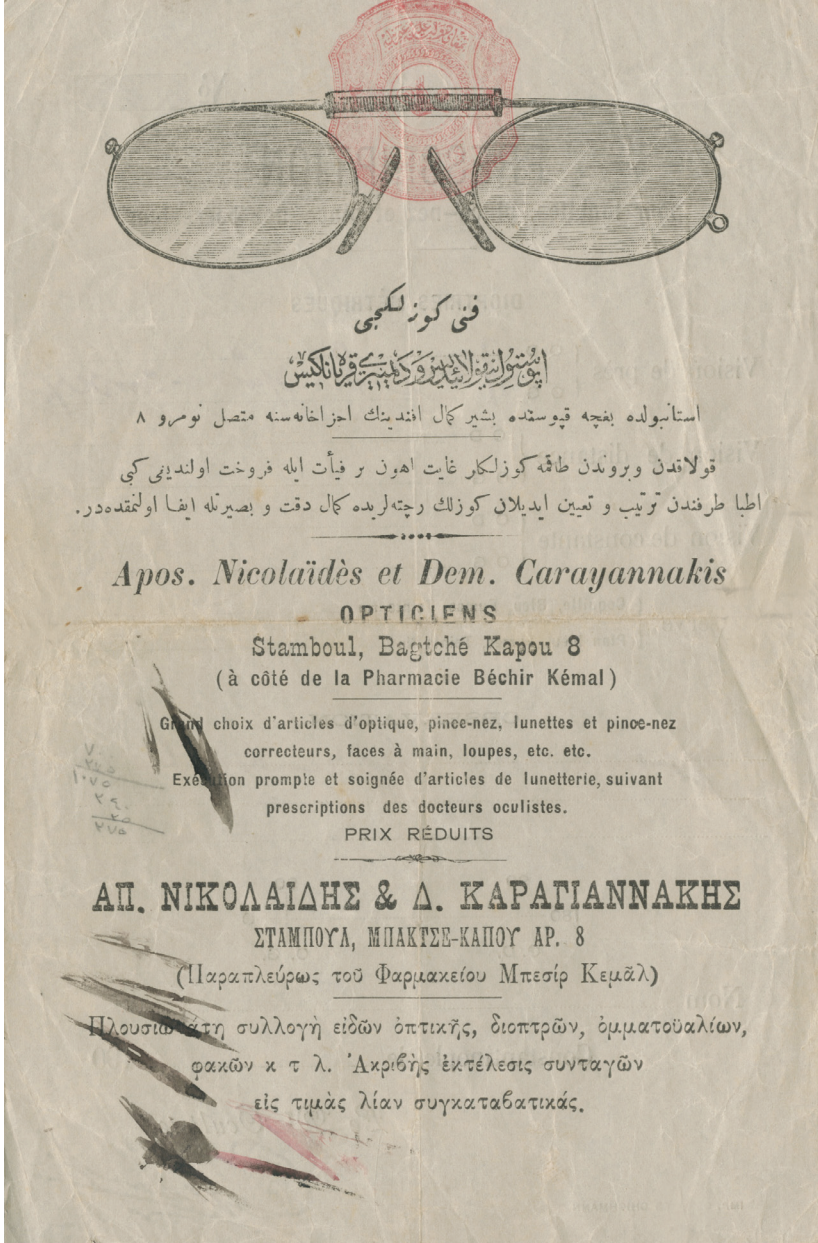 فنی كوزلكجی
اپوستول نیقولائیدیس و دیمیتری قره یاناكیس
استانبولده بغچه قپوسنده بشیر كمال افندینك اجزاخانه‌سنه متصل نومرو ٨
قولاقدن وبروندن طاقمه كوزلكلر غایت اهون بر فیأت ایله فروخت اولندیغی كبی
اطبا طرفندن ترتیب و تعیین ایدیلان كوزلك رچته‌لریده كمال دقت و بصیرتله ایفا اولنمقده‌در.
Apos. Nicolaïdès et Dem. Carayannakis
OPTICIENS
Stamboul, Bagtché Kapou 8
(à côté de la Pharmacie Béchir Kémal)
Grand choix d'articles d'optique, pince-nez, lunettes et pince-nez
correcteurs, faces à main, loupes, etc. etc.
Exécution prompte et soignée d'articles de lunetterie, suivant
prescriptions des docteurs oculistes.
PRIX RÉDUITS
ΑΠ. ΝΙΚΟΛΑΙΔΗΣ & Δ. ΚΑΡΑΓΙΑΝΝΑΚΗΣ
ΣΤΑΜΠΟΥΛ, ΜΠΑΚΤΣΕ-ΚΑΠΟΥ ΑΡ. 8
(Παραπλεύρως τοῦ Φαρμακείου Μπεσὶρ Κεμὰλ)
Πλουσιωτάτη συλλογὴ εἰδῶν ὀπτικῆς, διοπτρῶν, ὀμματοϋαλίων,
φακῶν κ τ λ. Ἀκριβὴς ἐκτέλεσις συνταγῶν
εἰς τιμὰς λίαν συγκαταβατικάς.